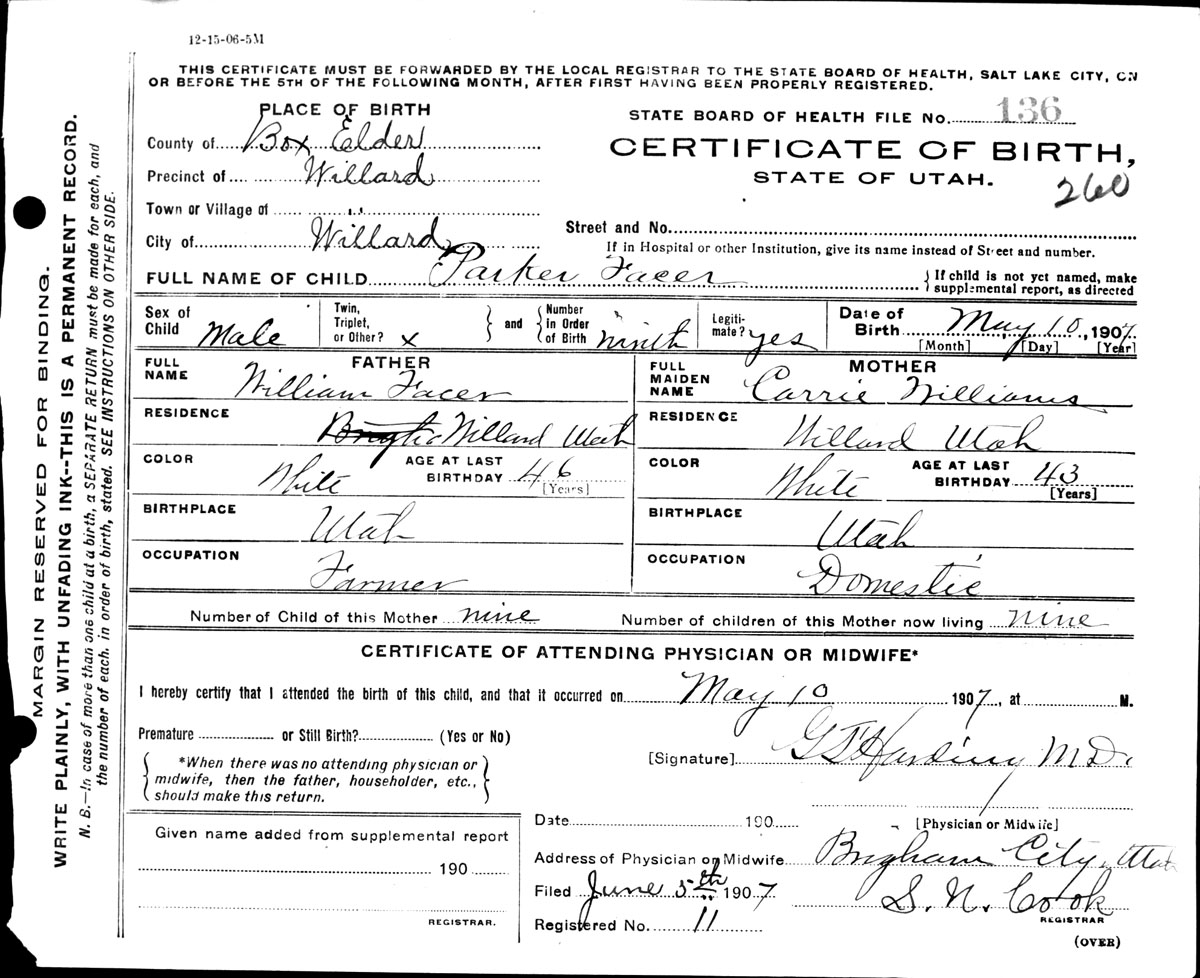 12-15-06-5M
THIS CERTIFICATE MUST BE FORWARDED BY THE LOCAL REGISTRAR TO THE STATE BOARD OF HEALTH, SALT LAKE CITY, ON
OR BEFORE THE 5TH OF THE FOLLOWING MONTH, AFTER FIRST HAVING BEEN PROPERLY REGISTERED.
PLACE OF BIRTH
STATE BOARD OF HEALTH FILE No. 136
County of Box Elder
CERTIFICATE OF BIRTH,
Precinct of Willard
STATE OF UTAH.
260
Town or Village of "
Street and No.
City of Willard
If in Hospital or other Institution, give its name instead of Street and number.
FULL NAME OF CHILD Parker Facer
{ If child is not yet named, make
supplemental report, as directed
Sex of Child Male
Twin, Triplet, or Other? x
} and { Number in Order of Birth ninth
Legitimate? yes
Date of Birth May 10, 1907
[Month] [Day] [Year]
FATHER
FULL NAME William Facer
RESIDENCE Willard Utah
COLOR White
AGE AT LAST BIRTHDAY 46
[Years]
BIRTHPLACE Utah
OCCUPATION Farmer
MOTHER
FULL MAIDEN NAME Carrie Williams
RESIDENCE Willard Utah
COLOR White
AGE AT LAST BIRTHDAY 43
[Years]
BIRTHPLACE Utah
OCCUPATION Domestic
Number of Child of this Mother nine
Number of children of this Mother now living nine
CERTIFICATE OF ATTENDING PHYSICIAN OR MIDWIFE*
I hereby certify that I attended the birth of this child, and that it occurred on May 10 1907, at M.
Premature or Still Birth? (Yes or No)
*When there was no attending physician or
midwife, then the father, householder, etc.,
should make this return.
[Signature] Harding M.D.
[Physician or Midwife]
Given name added from supplemental report
190
REGISTRAR.
Date 190
Address of Physician or Midwife Brigham City, Utah
Filed June 5th 1907
S. N. Cook
REGISTRAR
Registered No. 11
(OVER)
MARGIN RESERVED FOR BINDING.
WRITE PLAINLY, WITH UNFADING INK--THIS IS A PERMANENT RECORD.
N. B.—In case of more than one child at a birth, a SEPARATE RETURN must be made for each, and
the number of each, in order of birth, stated. SEE INSTRUCTIONS ON OTHER SIDE.